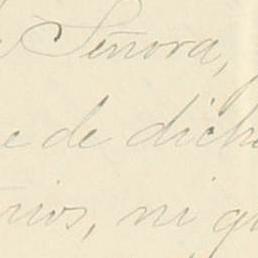 Señora,
e de dich
rios, ni q